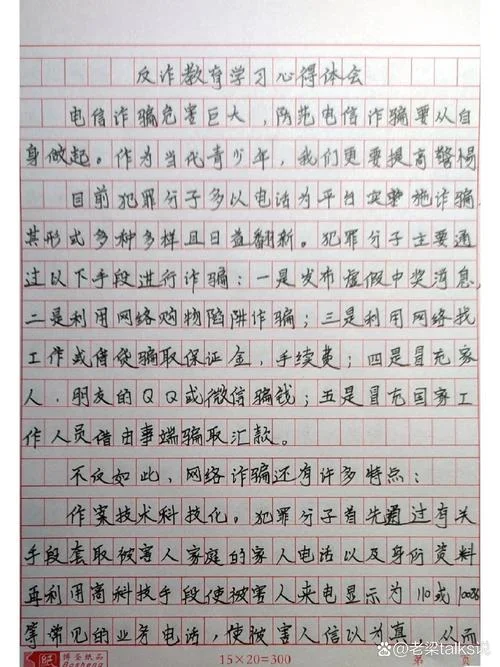 反诈教育学习心得体会
电信诈骗危害巨大，防范电信诈骗要从自
身做起。作为当代青少年，我们更要提高警惕
目前犯罪分子多以电话为平台实施诈骗
其形式多种多样且日益翻新。犯罪分子主要通
过以下手段进行诈骗：一是发布虚假中奖消息，
二是利用网络购物陷阱诈骗；三是利用网络找
工作或借贷骗取保证金，手续费；四是冒充家
人，朋友的QQ或微信骗钱；五是冒充国家工
作人员借由事端骗取汇款。
不仅如此，网络诈骗还有许多特点：
作案技术科技化。犯罪分子首先通过有关
手段套取被害人家庭的家人电话以及身份资料
再利用高科技手段使被害人来电显示为110或10086
等常见的业务电话，使被害人信以为真，从而
纸 博圣纸品
Bosheng
15×20=300
第 页
@老梁talks说